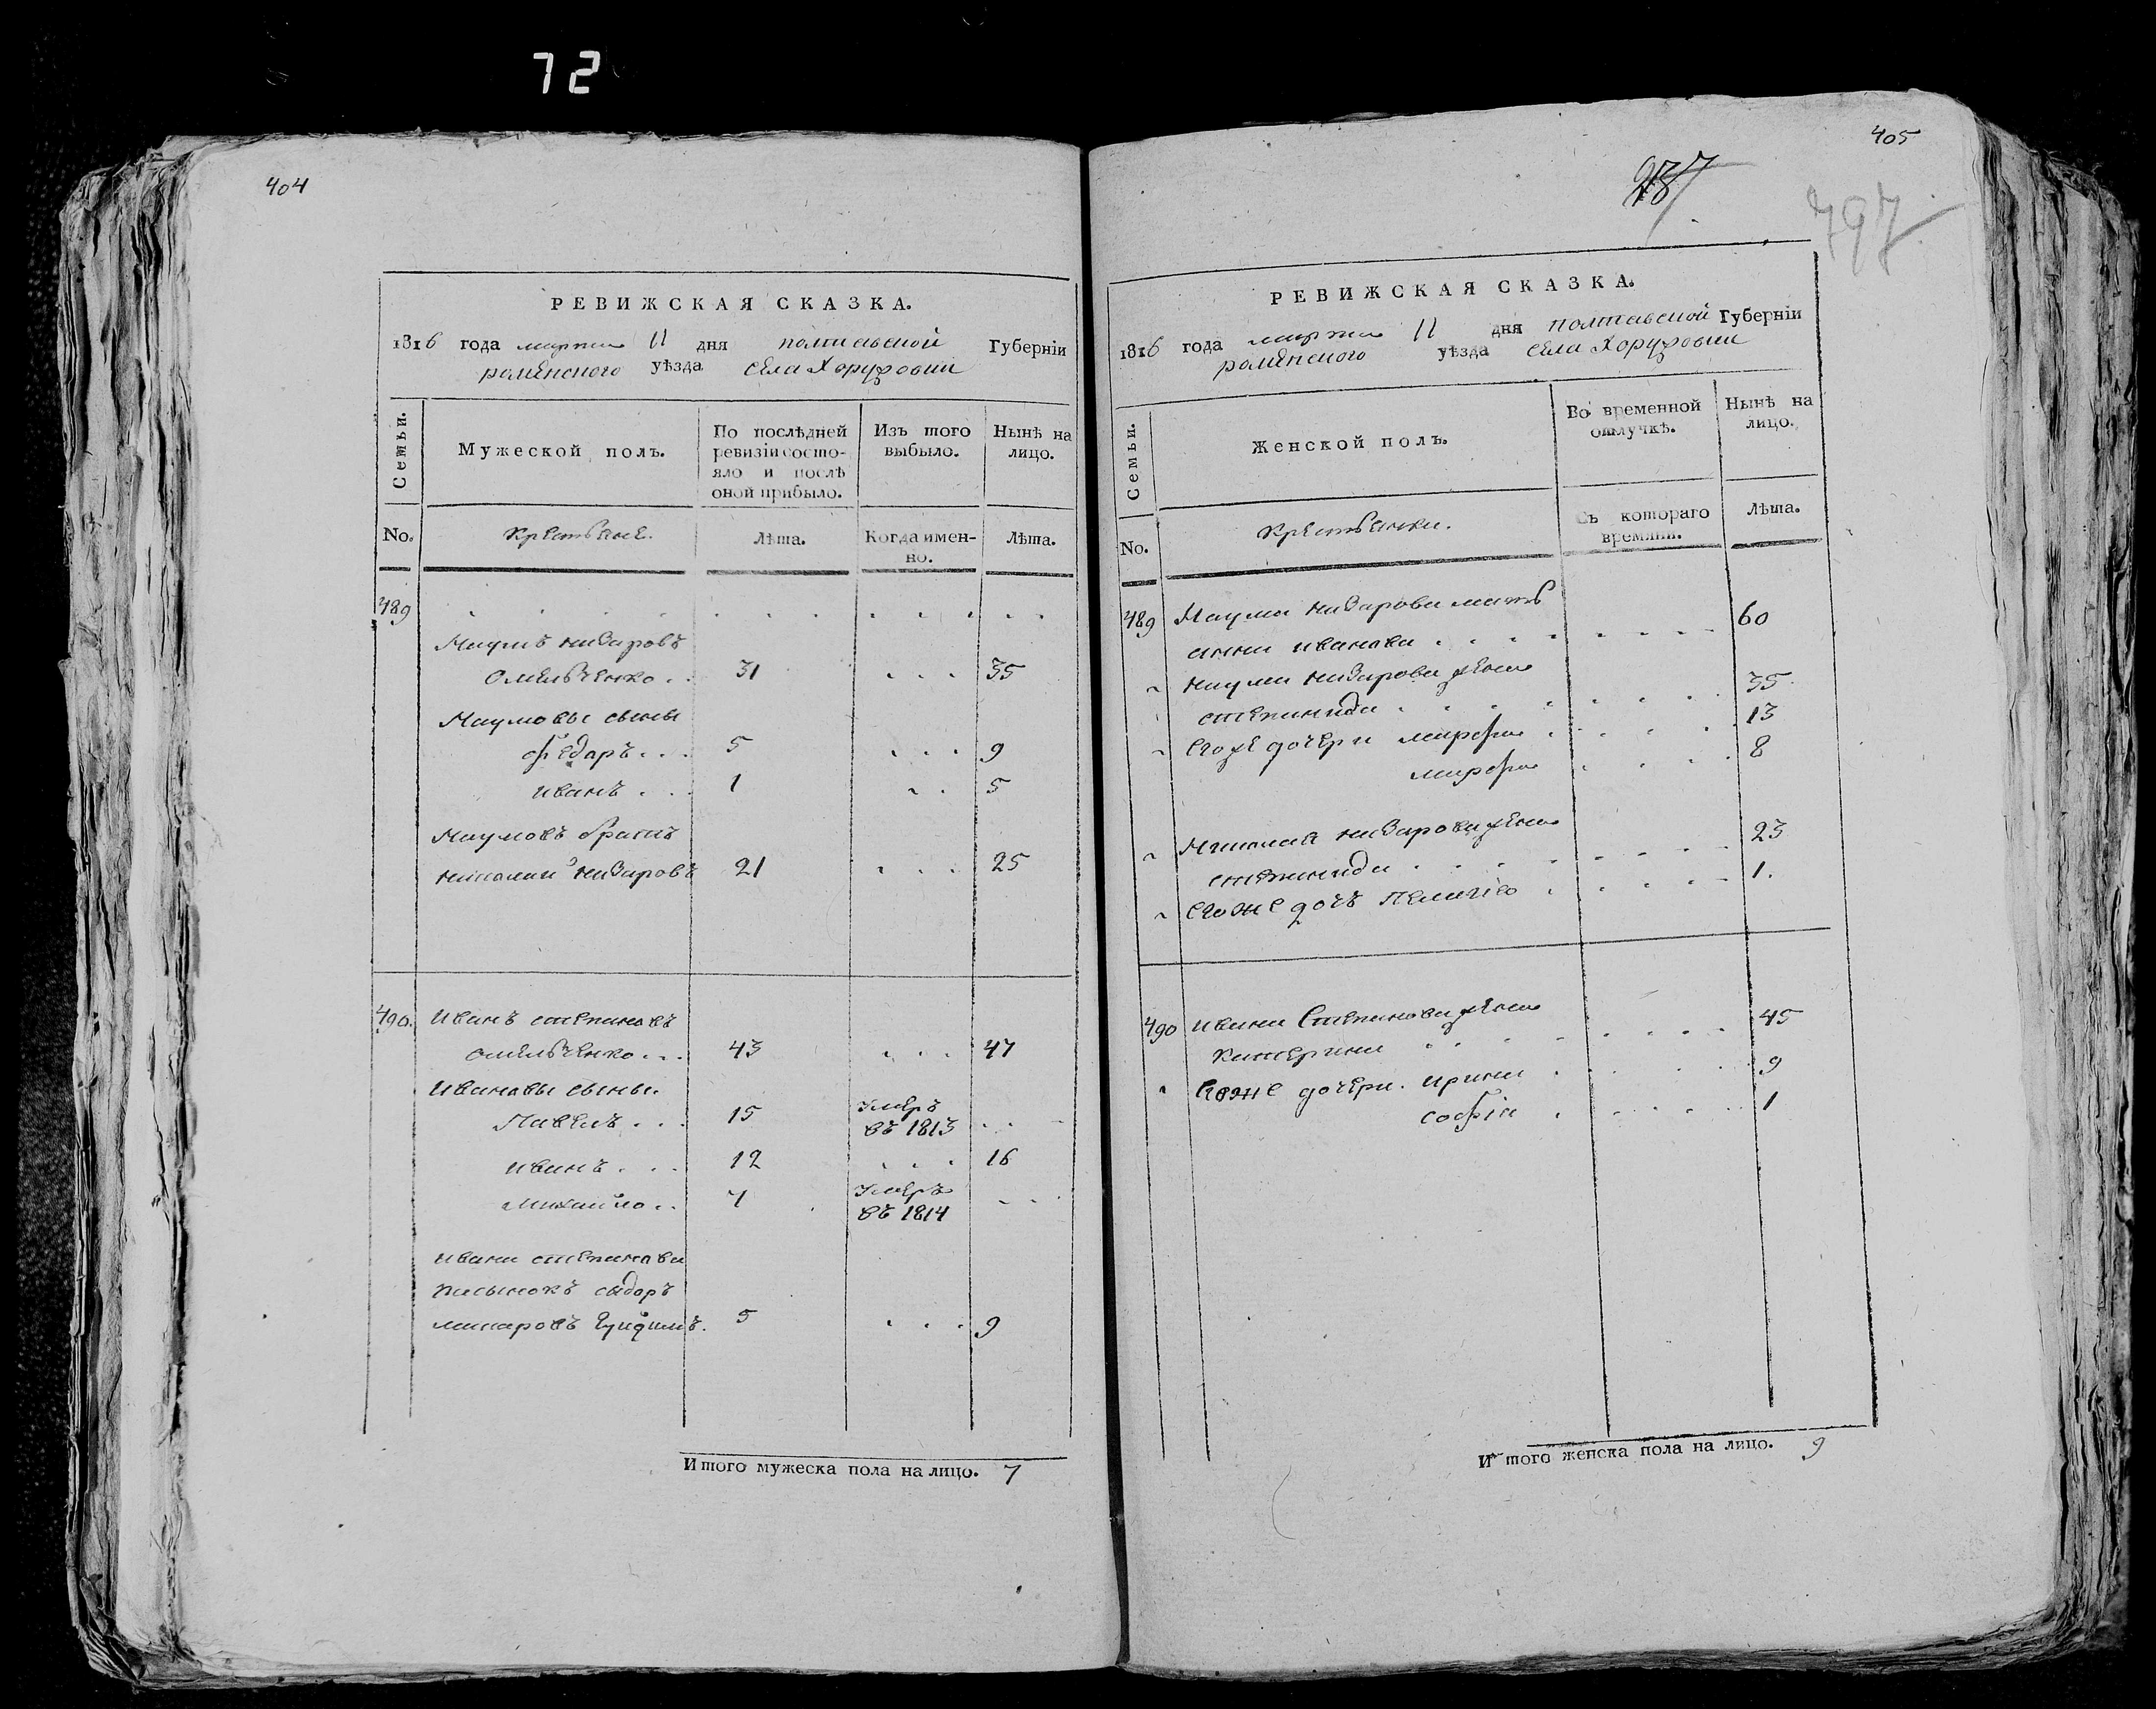 72
404
РЕВИЖСКАЯ СКАЗКА.
1816 года марта 11 дня полтавской Губерніи
роменского уѣзда села Хоружовки
Семьи.
Мужеской полъ.
По послѣдней ревизіи состояло и послѣ оной прибыло.
Изъ того выбыло.
Нынѣ на лицо.
No.
Крестьяне.
Лѣта.
Когда именно.
Лѣта.
489
Наумъ назаровъ
Омельченко . . 31 . . . 35
Наумовы сыны
федаръ . . . 5 . . . 9
иванъ . . . 1 . . 5
Наумовъ братъ
николай назаровъ 21 . . . 25
490. Иванъ степановъ
омельченко . . . 43 . . . 47
Ивановы сыны.
Павелъ . . . 15 умеръ въ 1813 . .
иванъ . . . 12 . . . 16
михайло . . 7 умеръ въ 1814 . .
ивана степанова
пасынокъ сидаръ
макаровъ 5 . . . 9
Итого мужеска пола на лицо. 7
405
237
797
РЕВИЖСКАЯ СКАЗКА.
1816 года марта 11 дня полтавской Губерніи
роменского уѣзда села Хоружовки
Семьи.
Женской полъ.
Во временной отлучкѣ.
Нынѣ на лицо.
No.
Крестьянки.
Съ котораго времяни.
Лѣта.
489 Наума назарова мать
анна иванова . . . . 60
наума назарова жена
степанида . . . . 35
егоже дочери марфа . . . 13
марфа . . . 8
Николая назарова жена
степанида . . . . 23
егоже дочь Пелагея . . . 1.
490 ивана Степанова жена
катерина . . . . 45
егоже дочери. ирина . . . 9
софія . . . 1
Итого женска пола на лицо. 9